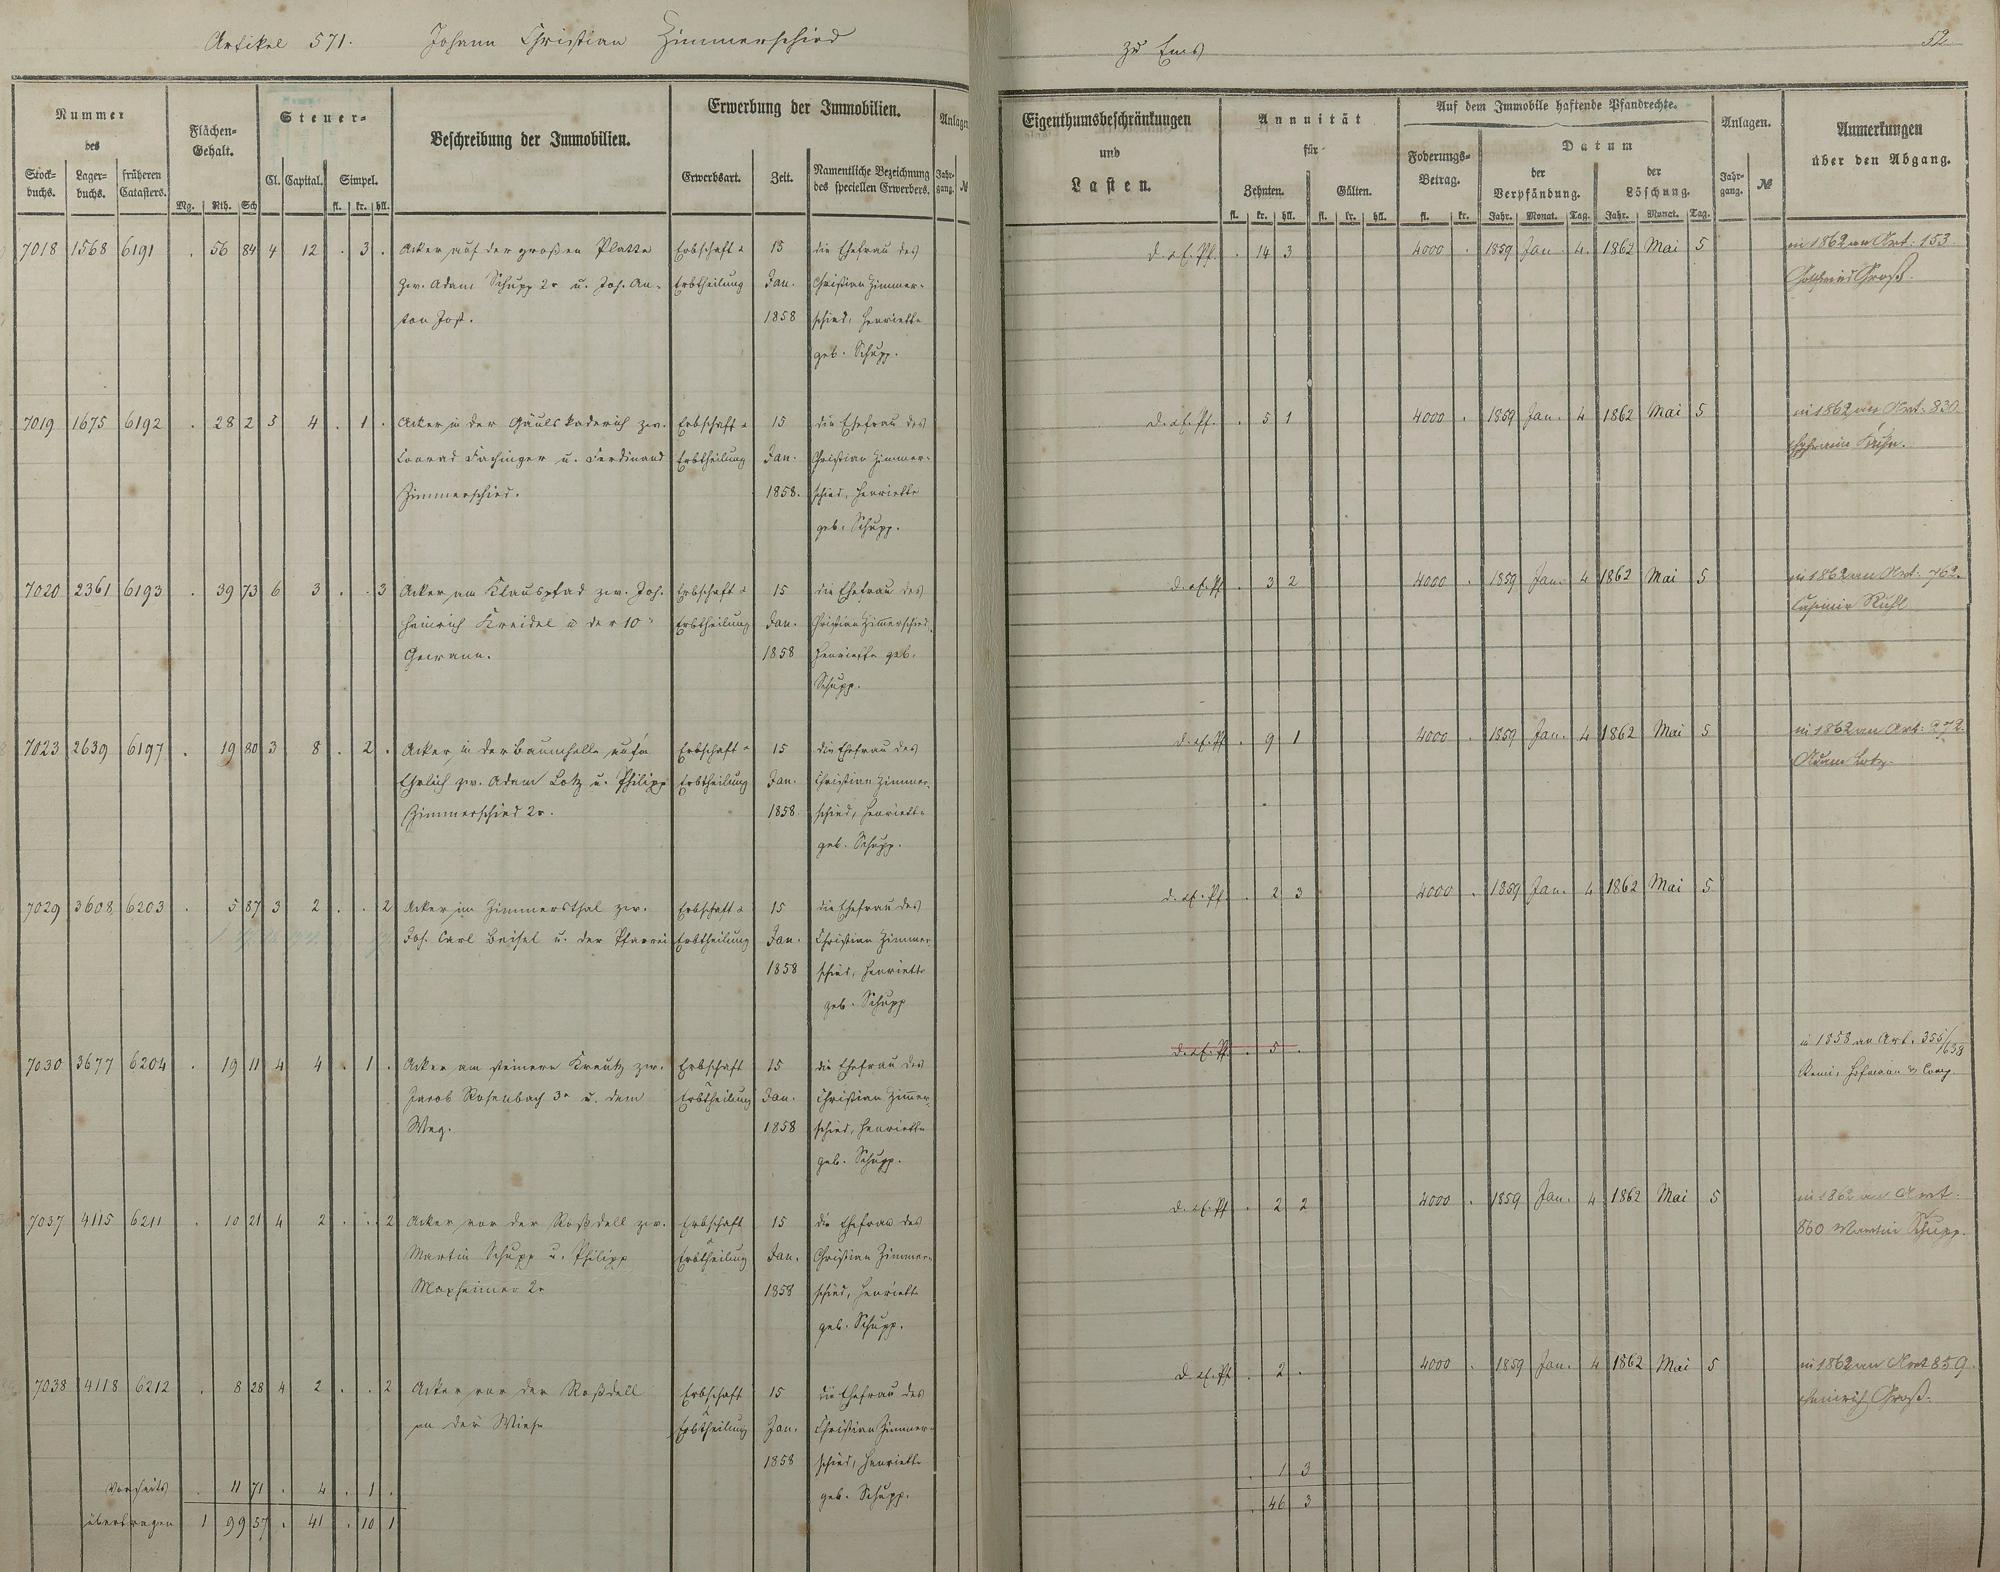 Artikel 571. Johann Christian Zimmerschied
zu Ems
52
Nummer
des
Stock-
buchs.
Lager-
buchs.
früheren
Catasters.
Flächen-
Gehalt.
Mg. Rth. Sch
Steuer-
Cl. Capital. Simpel.
fl. kr. hll.
Beschreibung der Immobilien.
Erwerbung der Immobilien.
Erwerbsart. Zeit. Namentliche Bezeichnung
des speciellen Erwerbers.
Anlagen
Jahr-
gang. №
Eigenthumsbeschränkungen
und
Lasten.
Annuität
für
Zehnten. Gülten.
fl. kr. hll. fl. kr. hll.
Auf dem Immobile haftende Pfandrechte.
Foderungs-
Betrag.
fl. kr.
Datum
der
Verpfändung.
der
Löschung.
Jahr. Monat. Tag. Jahr. Monat. Tag.
Anlagen.
Jahr-
gang. №
Anmerkungen
über den Abgang.
7018 1568 6191 . 56 84 4 12 . 3 . Acker auf der großen Platte Erbschaft & 15 die Ehefrau des
zw. Adam Schupp 2r u. Joh. An- Erbtheilung Jan. Christian Zimmer-
ton Jost. 1858 schied, Henriette
geb. Schupp.
d. ef. Pf. . 14 3 4000 . 1859 Jan. 4. 1862 Mai 5 in 1862 an Art: 153.
Gottfried Groß.
7019 1675 6192 . 28 2 5 4 . 1 . Acker in der Gäulskaderich zw. Erbschaft & 15 die Ehefrau des
Conrad Fachinger u. Ferdinand Erbtheilung Jan. Christian Zimmer-
Zimmerschied. 1858. schied, Henriette
geb. Schupp.
d. ef. Pf. . 5 1 4000 . 1859 Jan. 4 1862 Mai 5 in 1862 an Art: 830
7020 2361 6193 . 39 73 6 3 . . 3 Acker am Klauspfad zw. Joh. Erbschaft & 15 die Ehefrau des
Heinrich Kreidel u der 10r Erbtheilung Jan. Christian Zimmerschied
Gewann. 1858 Henriette geb.
Schupp.
d. ef. Pf . 3 2 4000 . 1859 Jan. 4 1862 Mai 5 in 1862 an Art: 762.
Casimir Rühl
7023 2639 6197 . 19 80 3 8 . 2 . Acker in der Baumhelle aufm Erbschaft & 15 die Ehefrau des
Ehrlich zw. Adam Lotz u. Philipp Erbtheilung Jan. Christian Zimmer-
Zimmerschied 2r. 1858 schied, Henriette
geb. Schupp.
d. ef. Pf . 9 1 4000 . 1859 Jan. 4 1862 Mai 5 in 1862 an Art: 272.
Adam Lotz.
7029 3608 6203 . 5 87 3 2 . . 2 Acker im Zimmersthal zw. Erbschaft & 15 die Ehefrau des
Joh. Carl Beisel u. der Pfarrei Erbtheilung Jan. Christian Zimmer-
1858 schied, Henriette
geb. Schupp
d. ef. Pf . 2 3 4000 . 1859 Jan. 4 1862 Mai 5
7030 3677 6204 . 19 11 4 4 . 1 . Acker am steinern Kreutz zw. Erbschaft 15 die Ehefrau des
Jacob Rosenbach 3r u. dem & Erbtheilung Jan. Christian Zimmer-
Weg. 1858 schied, Henriette
geb. Schupp.
d. ef. Pf. . 5 . in 1858 an Art. 355/638
Remi, Hofmann & Comp.
7037 4115 6211 . 10 21 4 2 . . 2 Acker vor der Roßdell zw. Erbschaft 15 die Ehefrau des
Martin Schupp u. Philipp & Erbtheilung Jan. Christian Zimmer-
Maxheimer 2r 1858 schied, Henriette
geb. Schupp.
d. ef. Pf . 2 2 4000 . 1859 Jan. 4 1862 Mai 5 in 1862 an Art:
860 Martin Schupp.
7038 4118 6212 . 8 28 4 2 . . 2 Acker vor der Roßdell Erbschaft 15 die Ehefrau des
an der Wiese & Erbtheilung Jan. Christian Zimmer-
1858 schied, Henriette
geb. Schupp.
d. ef. Pf . 2 . 4000 . 1859 Jan. 4 1862 Mai 5 in 1862 an Art 859.
Heinrich Groß.
vorseits . 11 71 . 4 . 1 . . 1 3
übertragen 1 99 57 . 41 . 10 1 . 46 3